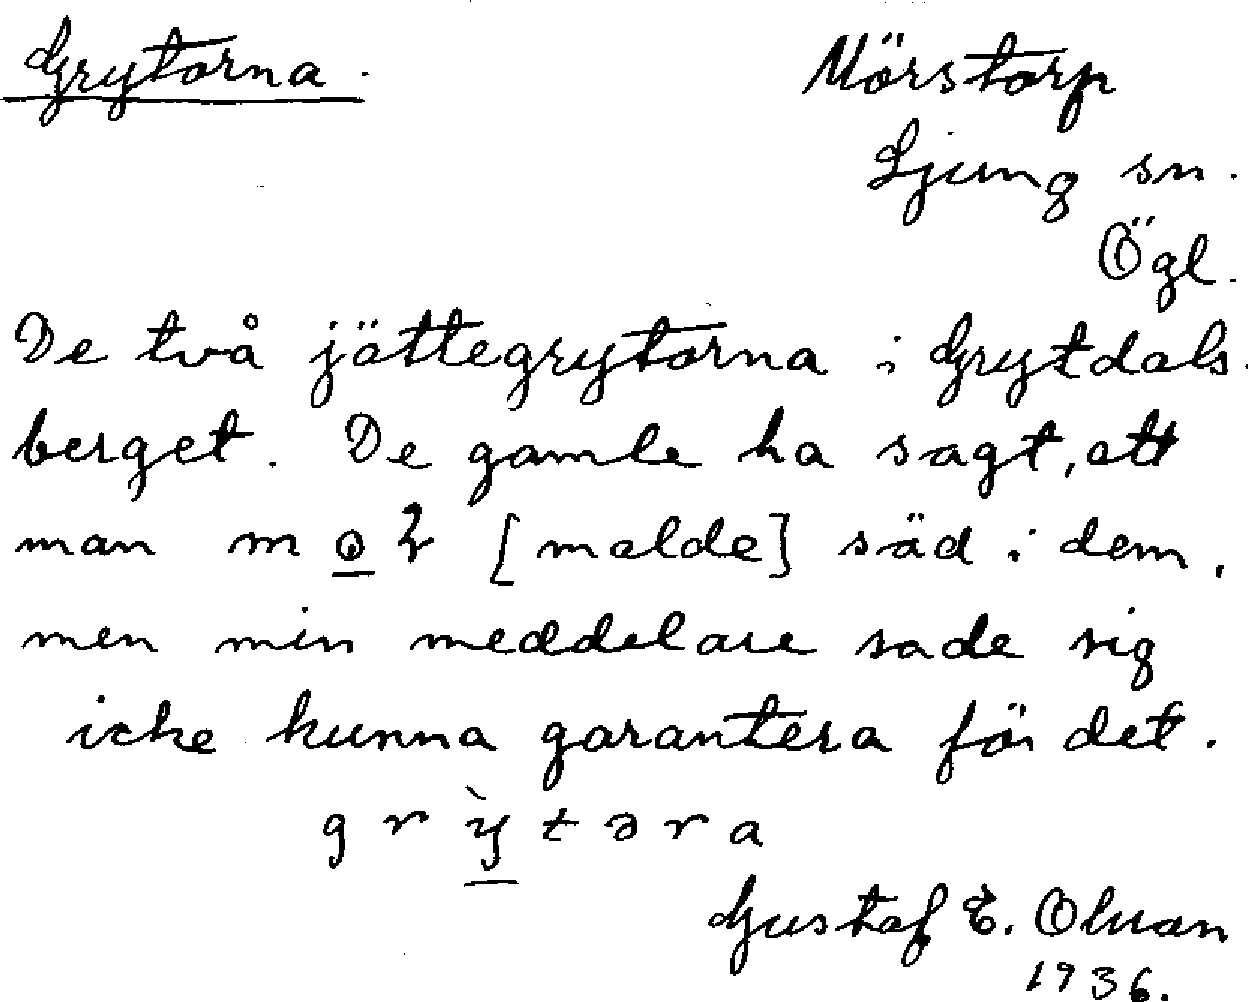 Grytorna.
Mörstorp
Ljung sn.
Ögl.
De två jättegrytorna i Grytdals-
berget. De gamle ha sagt, att
man [malde] säd i dem,
men min meddelare sade sig
icke kunna garantera för det.
grỳtəra
Gustaf E. Olsson
1936.